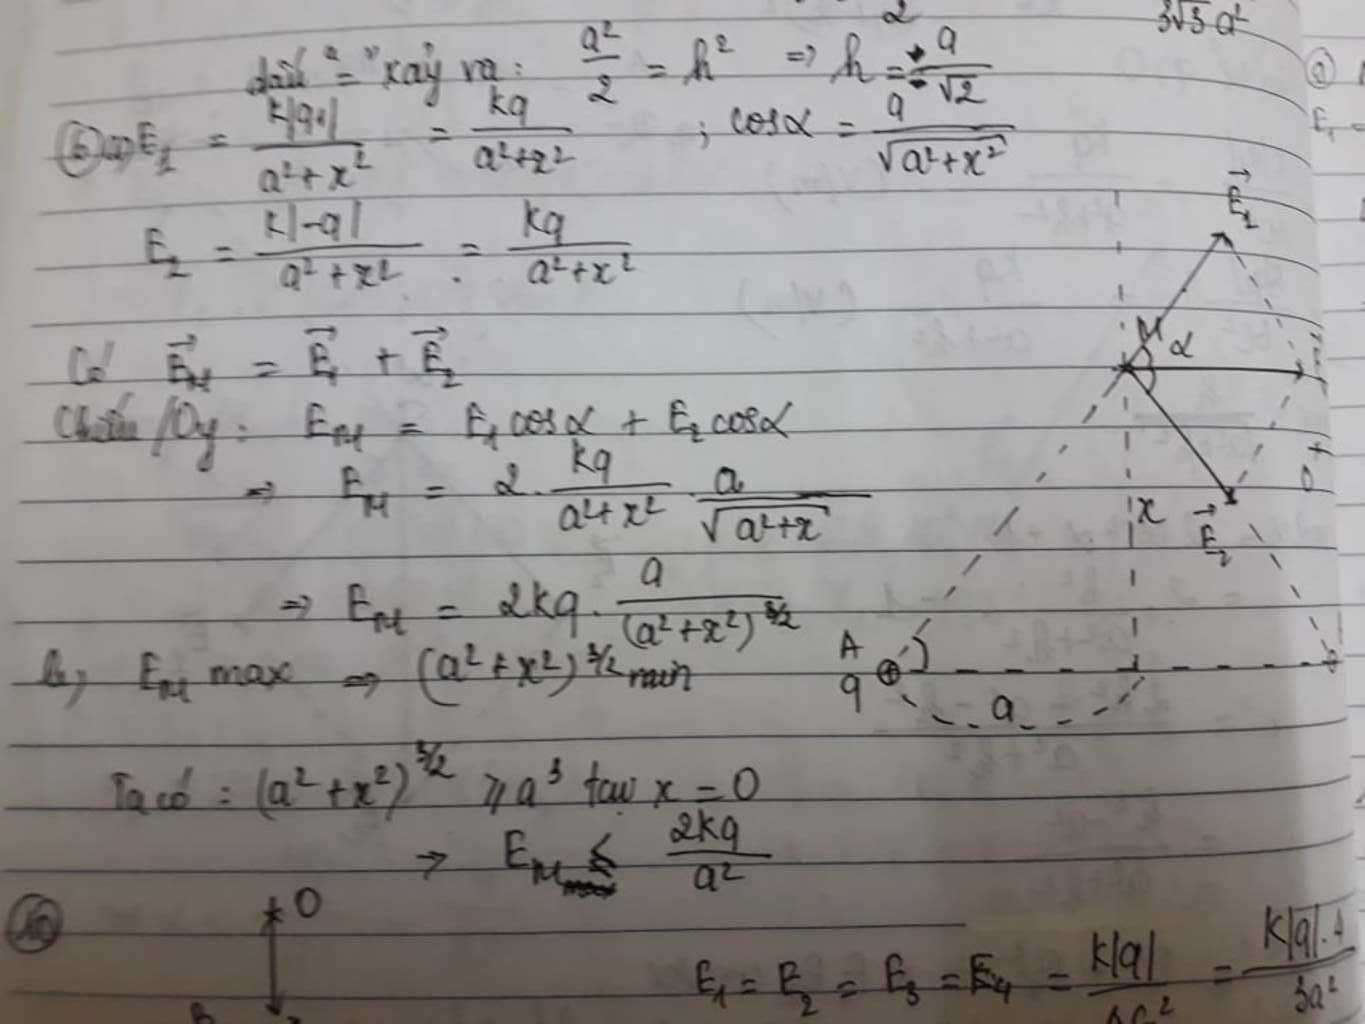 2
3√3 a²
dấu "=" xảy ra: a²/2 = h² => h = a/√2
⑥ a) E₁ = k|q|/(a²+x²) = kq/(a²+x²) ; cosα = a/√(a²+x²)
E₂ = k|-q|/(a²+x²) = kq/(a²+x²)
Có E⃗_M = E⃗₁ + E⃗₂
Chiếu /Oy: E_M = E₁cosα + E₂cosα
=> E_M = 2. kq/(a²+x²) . a/√(a²+x)
=> E_M = 2kq. a/(a²+x²)^3/2
b, E_M max => (a²+x²)^3/2 min
Ta có: (a²+x²)^3/2 ⩾ a³ tại x = 0
→ E_M ≤ 2kq/a²
E⃗₁
M
α
x
E⃗₂
A
q
a
⑩
O
E₁ = E₂ = E₃ = E₄ = k|q| = k|q|.4/3a²